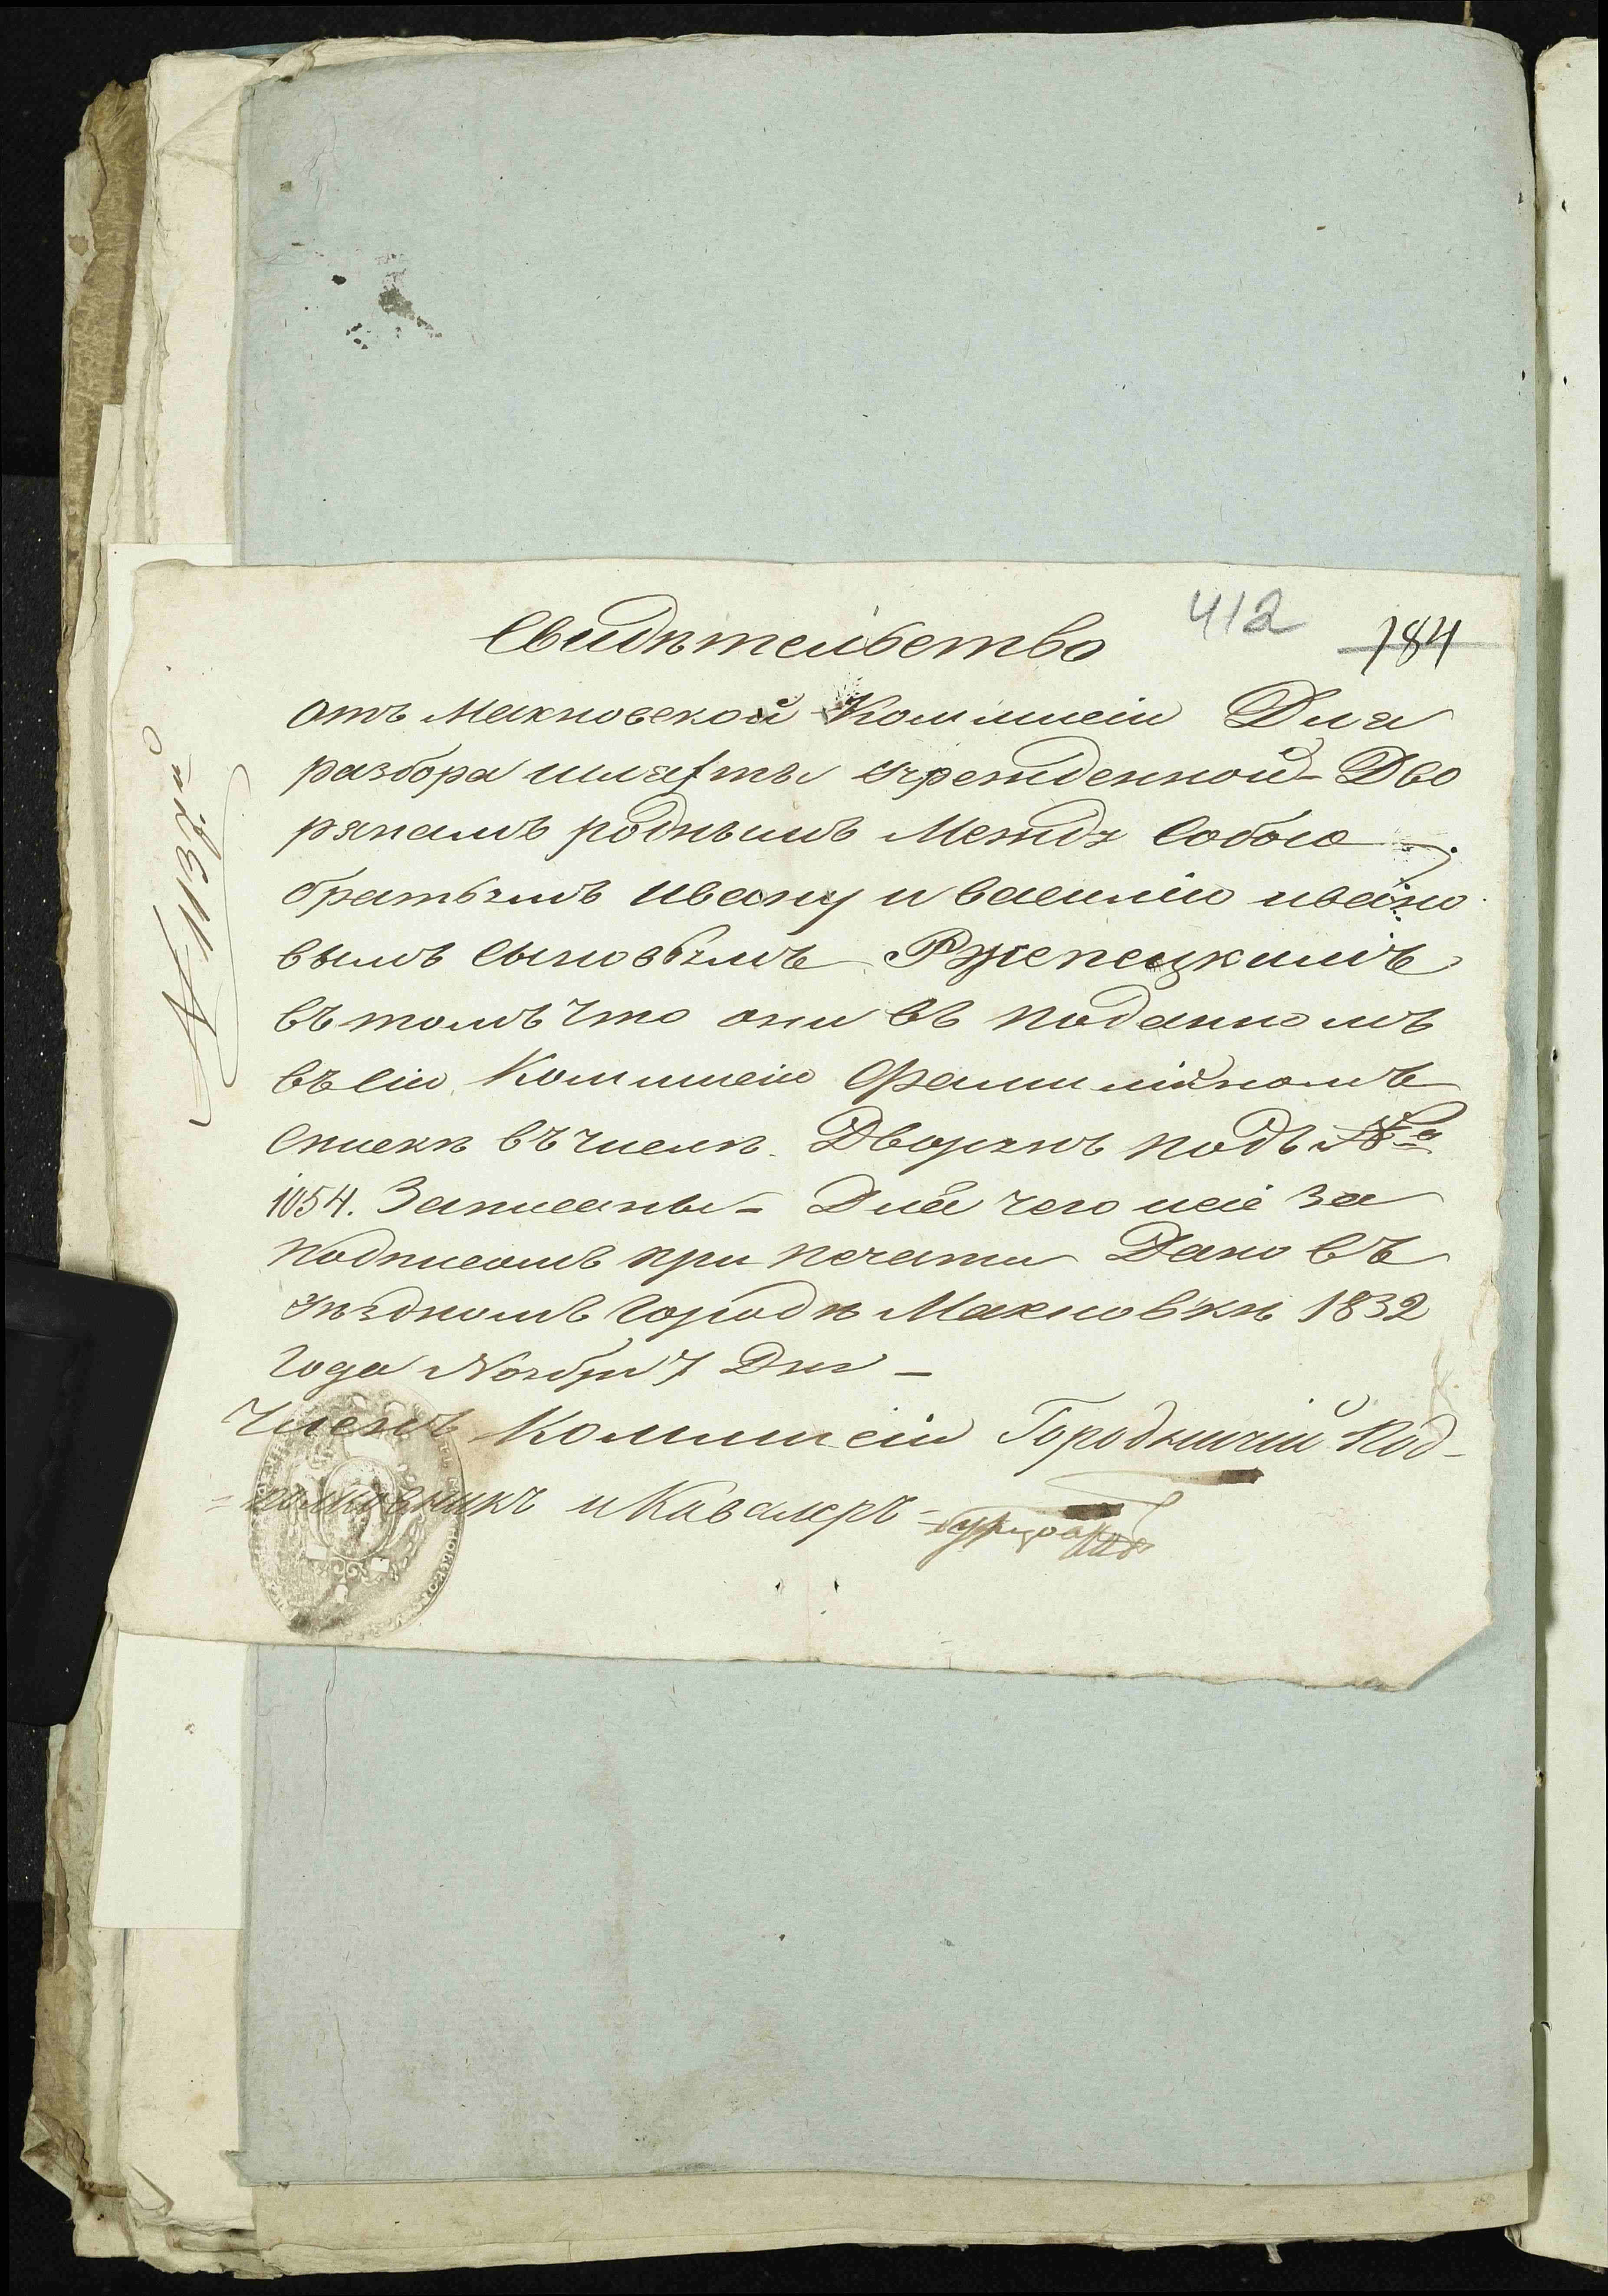 412
184
Свидѣтельство
отъ Махновской Коммисіи Для
разбора шляхты учрежденной - Дво
рянамъ роднымъ Между Собою
братьямъ ивану и василію ивано
вымъ Сыновьямъ Ржепецкимъ
въ томъ что они въ поданномъ
въ сію Коммисію Фамилійномъ
Спискѣ въ числѣ Дворянъ подъ №о
1054. Записаны - Для чего сіе За
подписомъ при печати Дано въ
уѣздномъ городѣ Махновкѣ 1832
Года Ноября 7 Дня -
Членъ Коммисіи Городничій Под-
=полковникъ и Кавалеръ
№ 1137й